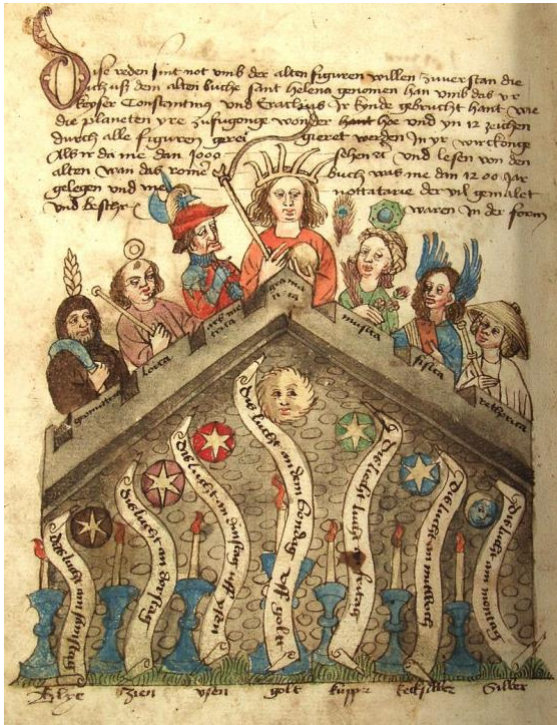 Dise reden sint not umb der alten figuren willen zuverstan die
uch uß dem alten buche sant helena genomen han umb das yr
keyser Constantinus und Eraclius Ir kynde gebrucht hant wie
die planeten yre zufugonge wonder hant hoe und yn 12 zeichen
durch alle figuren gerei gieret werden In yr wirckonge
Als ir da me dan 1000 sehen et und lesen von den
alten wan das rome buch was me dan 1200 Jar
gelegen und me nottatarie der vil gemalet
und beschr waren In der form
geometria
loeica
ars metrica
gramatica
musica
fisica
rethorica
Das lucht an samstag
Das lucht an
Das lucht an dinstag uff ysen
Das lucht an dem sondag uff golt
Die lucht
Die lucht an mitwoch
Die lucht am montag
Blye
zien
ysen
golt
kuppr
kecksilber
Silber